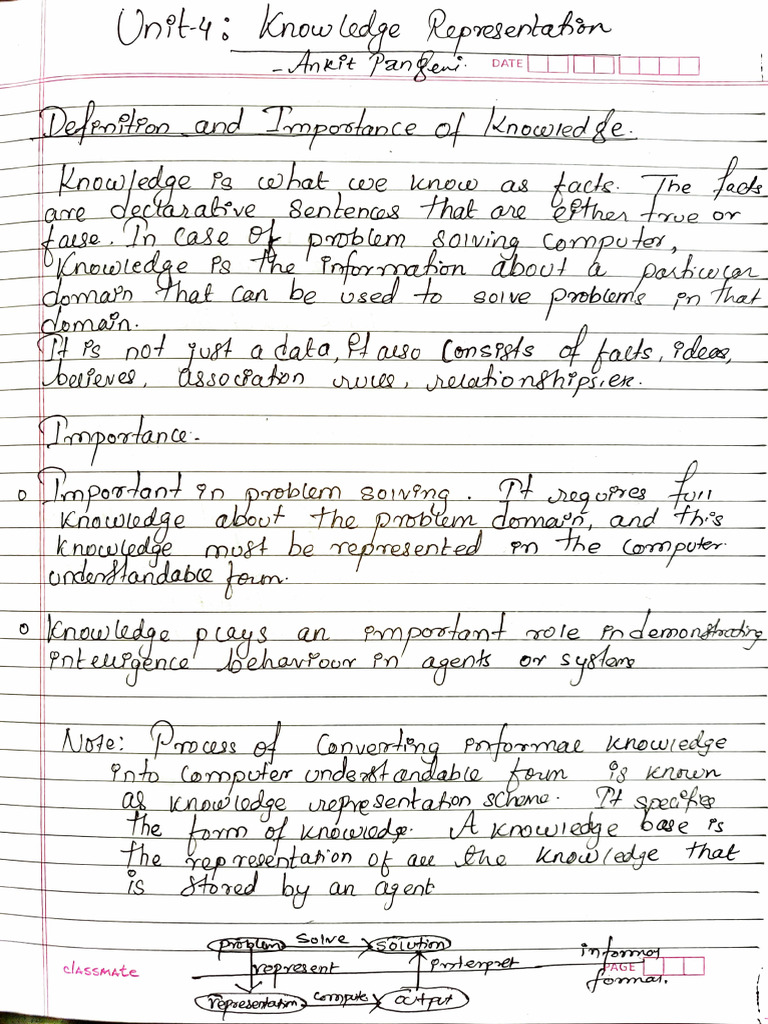 Unit-4: Knowledge Representation
- Ankit Pangeni.
DATE
Definition and Importance of Knowledge.
Knowledge is what we know as facts. The facts
are declarative sentences that are either true or
false. In case of problem solving computer,
Knowledge is the information about a particular
domain that can be used to solve problems in that
domain.
It is not just a data, it also consists of facts, ideas,
believes, association rules, relationships, etc.
Importance:-
Important in problem solving. It requires full
knowledge about the problem domain, and this
knowledge must be represented in the computer
understandable form.
Knowledge plays an important role in demonstrating
intelligence behaviour in agents or systems
Note: Process of converting informal knowledge
into computer understandable form is known
as knowledge representation scheme. It specifies
the form of knowledge. A knowledge base is
the representation of all the knowledge that
is stored by an agent
problem solve solution
represent interpret informal
classmate PAGE
formal.
representation compute output